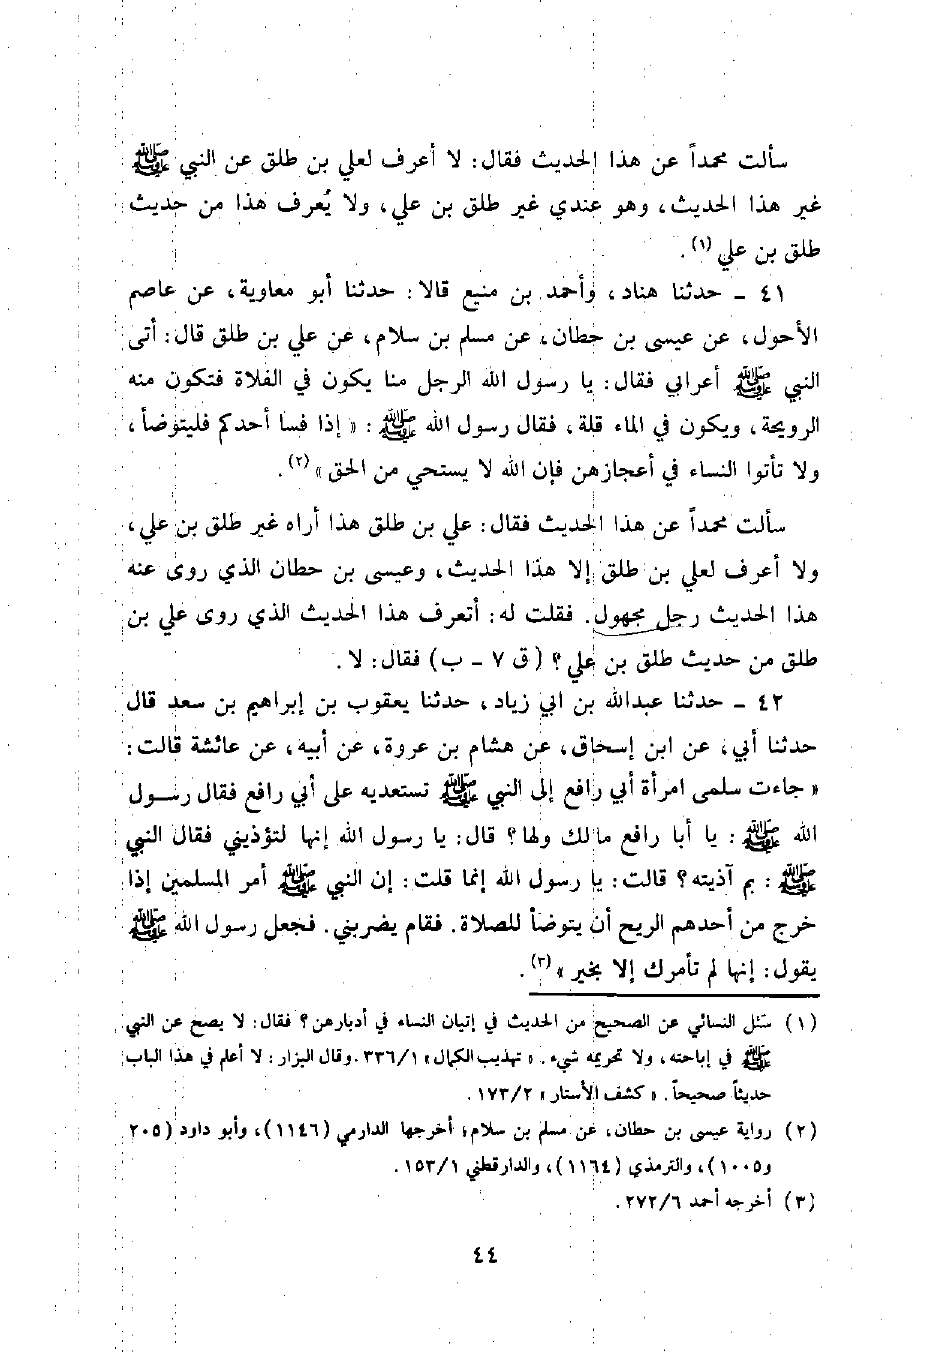 سألت محمداً عن هذا الحديث فقال: لا أعرف لعلي بن طلق عن النبي ﷺ
غير هذا الحديث، وهو عندي غير طلق بن علي، ولا يُعرف هذا من حديث
طلق بن علي (١).
٤١ - حدثنا هناد، وأحمد بن منيع قالا: حدثنا أبو معاوية، عن عاصم
الأحول، عن عيسى بن حطان، عن مسلم بن سلام، عن علي بن طلق قال: أتى
النبي ﷺ أعرابي فقال: يا رسول الله الرجل منا يكون في الفلاة فتكون منه
الرويحة، ويكون في الماء قلة، فقال رسول الله ﷺ: « إذا فسا أحدكم فليتوضأ،
ولا تأتوا النساء في أعجازهن فإن الله لا يستحي من الحق » (٢).
سألت محمداً عن هذا الحديث فقال: علي بن طلق هذا أراه غير طلق بن علي،
ولا أعرف لعلي بن طلق إلا هذا الحديث، وعيسى بن حطان الذي روى عنه
هذا الحديث رجل مجهول. فقلت له: أتعرف هذا الحديث الذي روى علي بن
طلق من حديث طلق بن علي؟ ( ق ٧ - ب) فقال: لا.
٤٢ - حدثنا عبدالله بن ابي زياد، حدثنا يعقوب بن إبراهيم بن سعد قال
حدثنا أبي، عن ابن إسحاق، عن هشام بن عروة، عن أبيه، عن عائشة قالت:
« جاءت سلمى امرأة أبي رافع إلى النبي ﷺ تستعديه على أبي رافع فقال رسول
الله ﷺ: يا أبا رافع مالك ولها؟ قال: يا رسول الله إنها لتؤذيني فقال النبي
ﷺ: بم آذيته؟ قالت: يا رسول الله إنما قلت: إن النبي ﷺ أمر المسلمين إذا
خرج من أحدهم الريح أن يتوضأ للصلاة. فقام يضربني. فجعل رسول الله ﷺ
يقول: إنها لم تأمرك إلا بخير » (٣).
(١) سئل النسائي عن الصحيح من الحديث في إتيان النساء في أدبارهن؟ فقال: لا يصح عن النبي
ﷺ في إباحته، ولا تحريمه شيء. « تهذيب الكمال » ٣٣٦/١. وقال البزار: لا أعلم في هذا الباب
حديثاً صحيحاً. « كشف الأستار » ١٧٣/٢.
(٢) رواية عيسى بن حطان، عن مسلم بن سلام؛ أخرجها الدارمي (١١٤٦)، وأبو داود (٢٠٥
و١٠٠٥)، والترمذي (١١٦٤)، والدارقطني ١٥٣/١.
(٣) أخرجه أحمد ٢٧٢/٦.
٤٤